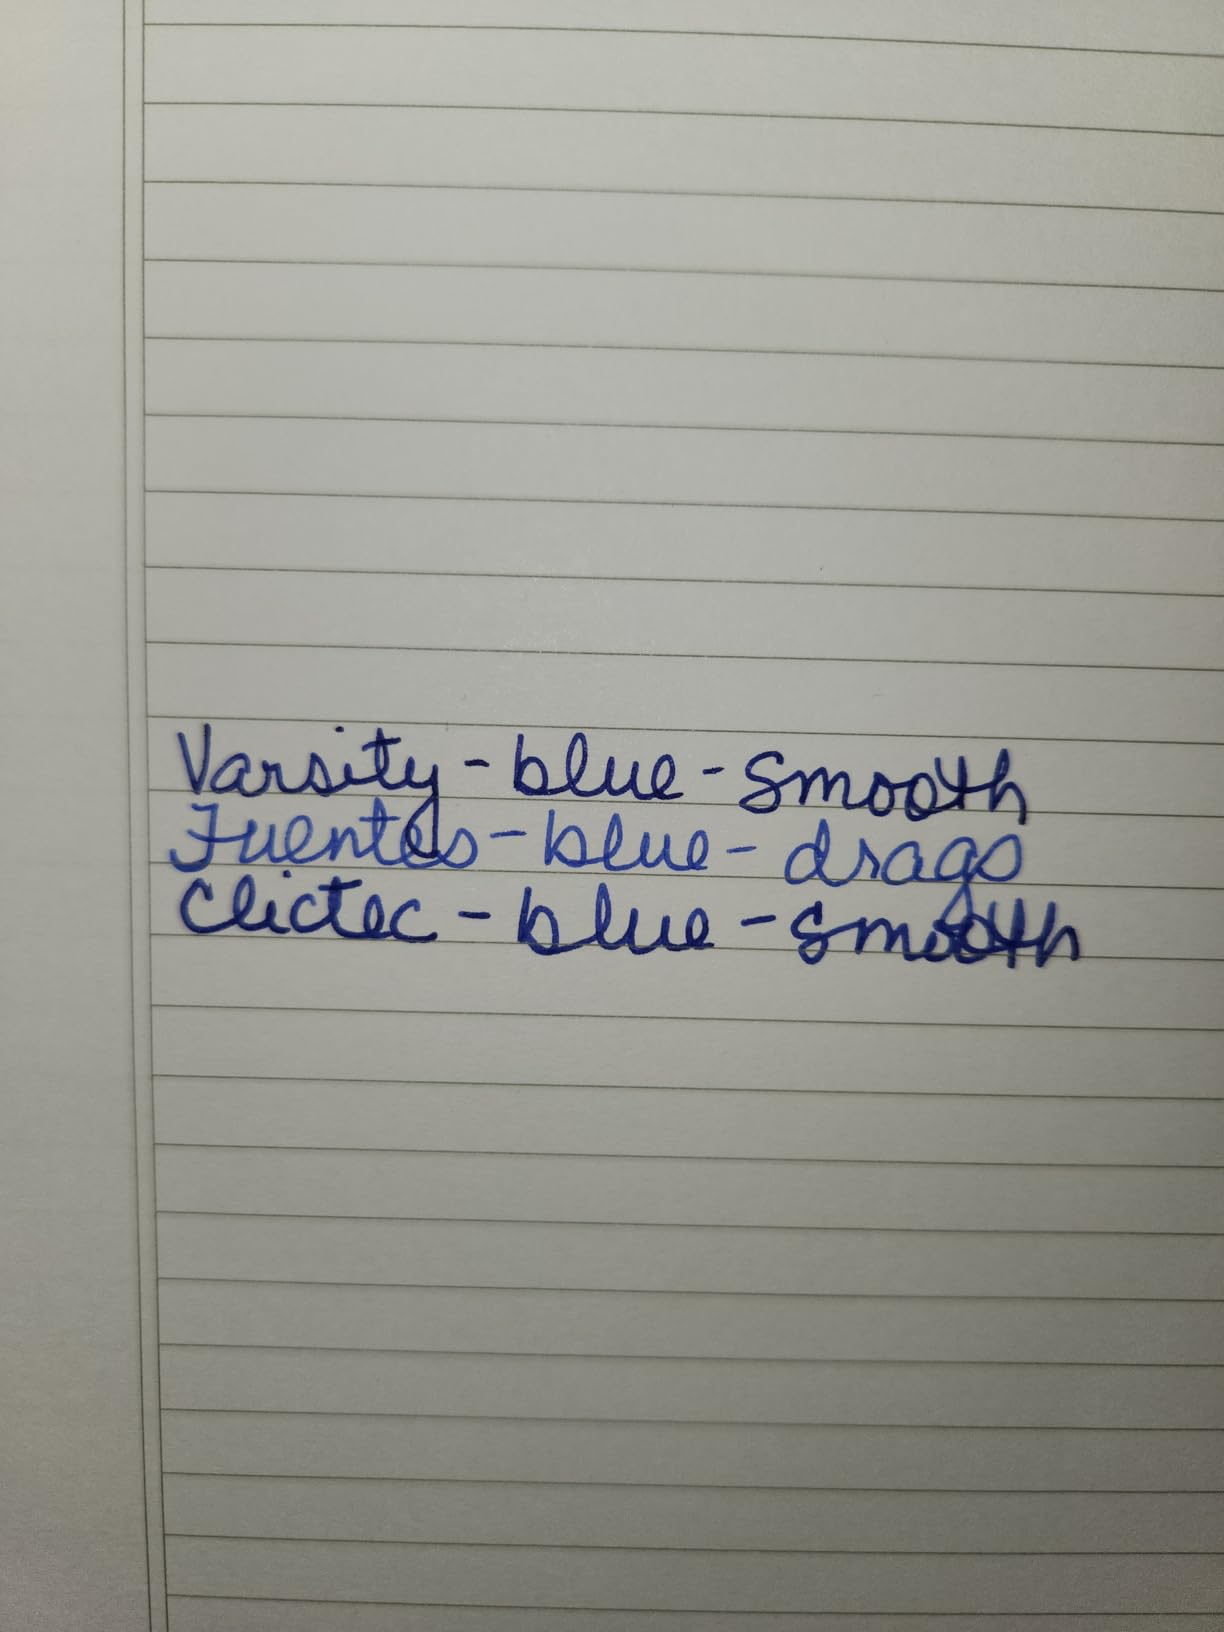 Varsity - blue - smooth
Fuentes - blue - drags
Clictec - blue - smooth